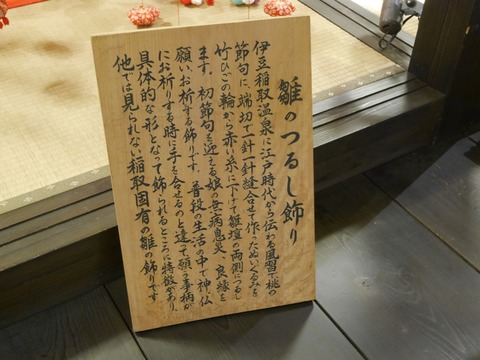 雛のつるし飾り
伊豆稲取温泉に江戸時代から伝わる風習で桃の
節句に、端切で一針一針縫合せて作ったぬいぐるみを
竹ひごの輪から赤い糸に下げて雛壇の両側につるし
ます。初節句を迎える娘の無病息災、良縁を
願い、お祈りする飾りです。普段の生活の中で神、仏
にお祈りする時に手を合せるのと違って願う事柄が
具体的な形となって飾られるところに特徴があり、
他では見られない稲取固有の雛の飾りです。